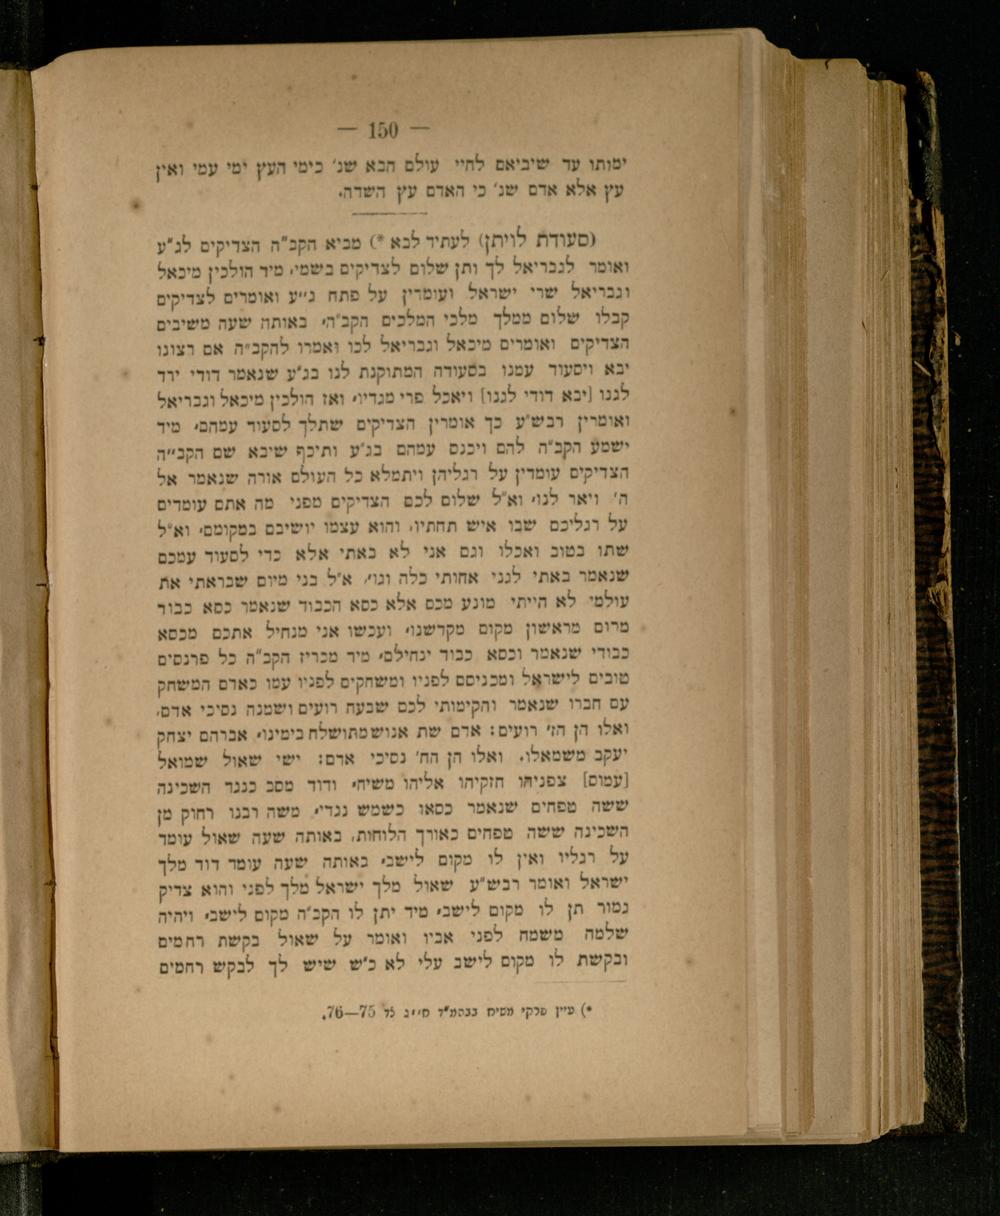 — 150 —
ימותו עד שיביאם לחיי עולם הבא שנ' כימי העץ ימי עמי ואין
עץ אלא אדם שנ' כי האדם עץ השדה.
(סעודת לויתן) לעתיד לבא *) מביא הקב"ה הצדיקים לג"ע
ואומר לגבריאל לך ותן שלום לצדיקים בשמי, מיד הולכין מיכאל
וגבריאל שרי ישראל ועומדין על פתח ג"ע ואומרים לצדיקים
קבלו שלום ממלך מלכי המלכים הקב"ה, באותה שעה משיבים
הצדיקים ואומרים מיכאל וגבריאל לכו ואמרו להקב"ה אם רצונו
יבא ויסעוד עמנו בסעודה המתוקנת לנו בג"ע שנאמר דודי ירד
לגנו [יבא דודי לגנו] ויאכל פרי מגדיו, ואז הולכין מיכאל וגבריאל
ואומרין רבש"ע כך אומרין הצדיקים שתלך לסעוד עמהם, מיד
ישמע הקב"ה להם ויכנס עמהם בג"ע ותיכף שיבא שם הקב"ה
הצדיקים עומדין על רגליהן ויתמלא כל העולם אורה שנאמר אל
ה' ויאר לנו, וא"ל שלום לכם הצדיקים מפני מה אתם עומדים
על רגליכם שבו איש תחתיו, והוא עצמו יושיבם במקומם, וא"ל
שתו בטוב ואכלו וגם אני לא באתי אלא כדי לסעוד עמכם
שנאמר באתי לגני אחותי כלה וגו', א"ל בני מיום שבראתי את
עולמי לא הייתי מונע מכם אלא כסא הכבוד שנאמר כסא כבוד
מרום מראשון מקום מקדשנו, ועכשו אני מנחיל אתכם מכסא
כבודי שנאמר וכסא כבוד ינחילם, מיד מכריז הקב"ה כל פרנסים
טובים לישראל ומכניסם לפניו ומשחקים לפניו עמו כאדם המשחק
עם חברו שנאמר והקימותי לכם שבעה רועים ושמנה נסיכי אדם,
ואלו הן הז' רועים: אדם שת אנוש מתושלח בימינו, אברהם יצחק
יעקב משמאלו. ואלו הן הח' נסיכי אדם: ישי שאול שמואל
[עמוס] צפניהו חזקיהו אליהו משיח, ודוד מסב כנגד השכינה
ששה טפחים שנאמר כסאו כשמש נגדי, משה רבנו רחוק מן
השכינה ששה טפחים כאורך הלוחות, באותה שעה שאול עומד
על רגליו ואין לו מקום לישב, באותה שעה עומד דוד מלך
ישראל ואומר רבש"ע שאול מלך ישראל מלך לפני והוא צדיק
גמור תן לו מקום לישב, מיד יתן לו הקב"ה מקום לישב, ויהיה
שלמה משמח לפני אביו ואומר על שאול בקשת רחמים
ובקשת לו מקום לישב עלי לא כ"ש שיש לך לבקש רחמים
*) עיין פרקי משיח בבהמ"ד ח"ג צד 75—76.